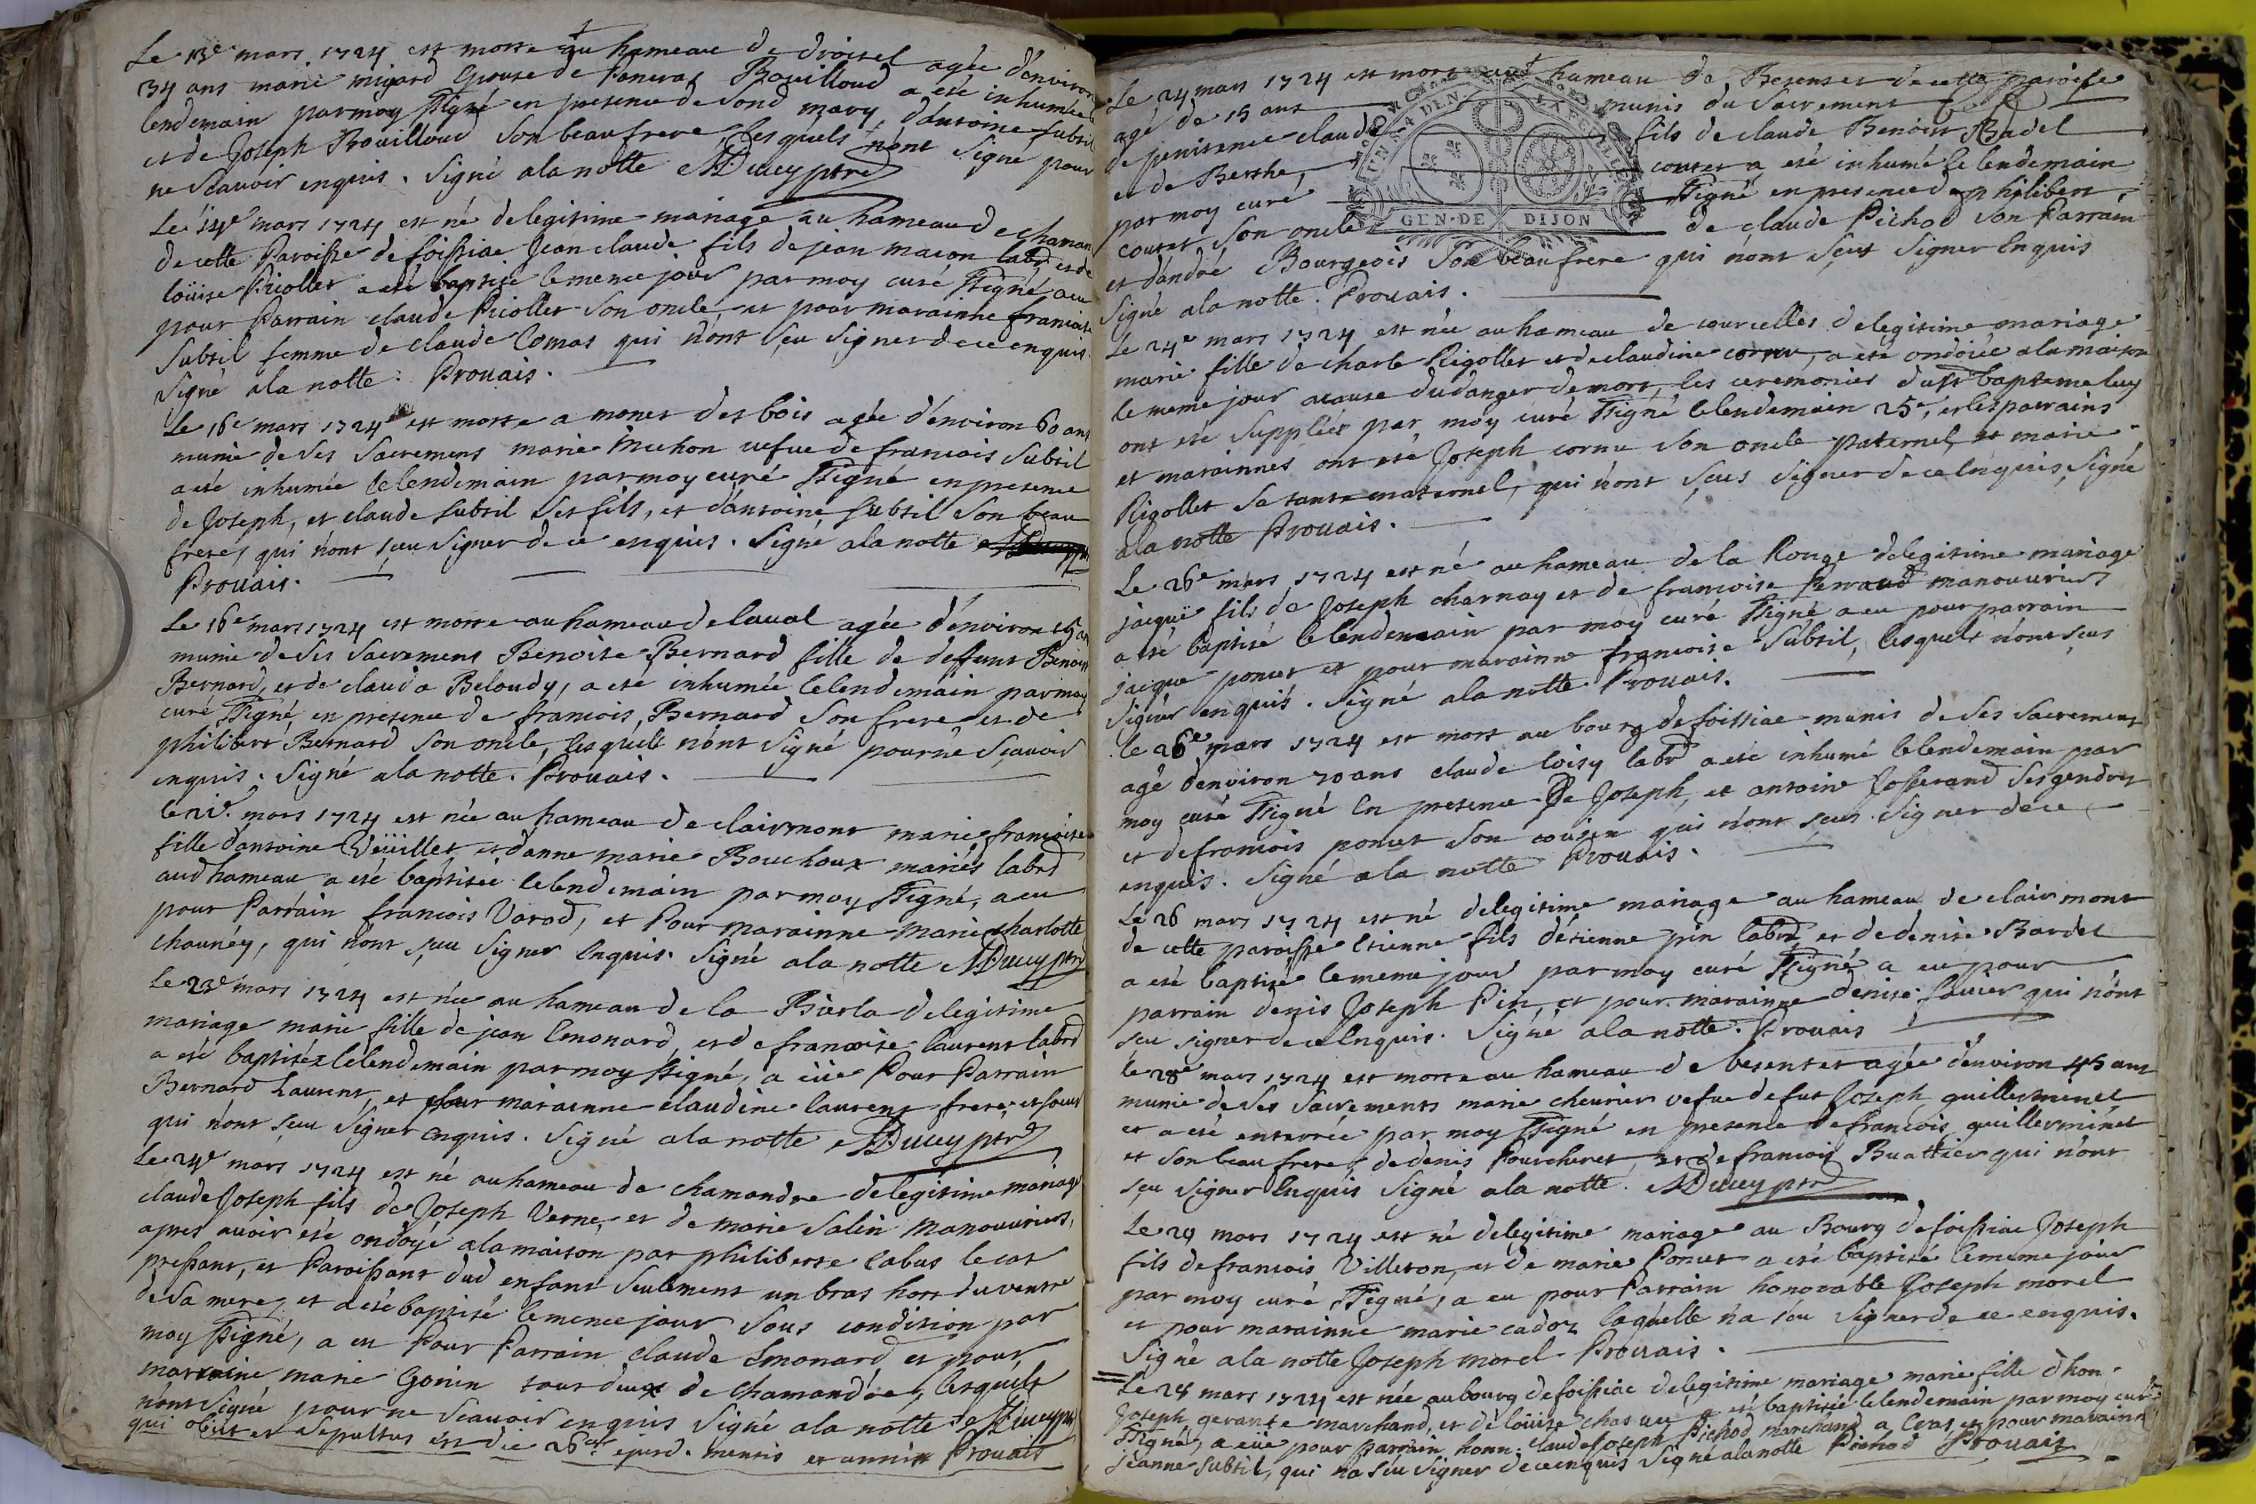 Le 13e mars 1724 est morte au hameau de droisel agée d'environ
34 ans marie migard Epouse de Boüilloud a eté inhumée
lendemain par moy ssigné en presence de sond mary, d'antoine subtil
et de Joseph Boüilloud son beaufrere lesquels n'ont signé pour
ne scavoir enquis. Signé a la notte MDucey ptre
Le 14e mars 1724 est né de legitime mariage au hameau de chaman
de cette Paroisse de foissiac Jean claude fils de jean macon labr et de
loüise Pricollet a eté baptisé le meme jour par moy curé ssigné a eu
pour Parrain claude Pricollet son oncle, et pour marainne francoise
Subtil femme de claude Comas qui n'ont sçeu signer de ce enquis.
Signé a la notte. Prouais.
Le 16e mars 1724 est morte a monet des bois agée d'environ 60 ans
munie de ses sacremens marie Michon vefue de francois subtil
a eté inhumée le lendemain par moy curé ssigné en presence
de Joseph, et claude subtil ses fils, et d'antoine subtil son beau
frere, qui n'ont sçeu signer de ce enquis. Signé a la notte
Prouais.
Le 16e mars 1724 est morte au hameau de laual agée d'environ
munie de ses Sacremens Benoite Bernard fille de deffunt Benoit
Bernard, et de clauda Beloudy, a eté inhumée le lendemain par moy
curé ssigné en presence de francois Bernard son frere et de
philibert Bernard son oncle, lesquels n'ont signé pour ne sçavoir
enquis. Signé a la notte. Prouais.
le 21e mars 1724 est née au hameau de clairmont marie francoise
fille d'antoine Veüillet et d'anne marie Bouchoux mariés labrs
aud hameau a eté baptisée le lendemain par moy ssigné, a eu
pour Parrain francois Varod, et Pour marainne marie charlotte
chaunéy, qui n'ont sçeu signer Enquis. Signé a la notte MDucey ptre
Le 23e mars 1724 est née au hameau de la Bierla de legitime
mariage marie fille de jean Emonard, et de francoise laurent labrs
a eté baptisée le lendemain par moy ssigné, a eüe Pour Parrain
Bernard Laurent, et pour marainne claudine laurent frere et soeur
qui n'ont sçeu signer enquis. Signé a la notte MDucey ptre
Le 24e mars 1724 est né au hameau de chamandre de legitime mariage
claude Joseph fils de Joseph Verne, et de marie salin manouuriers,
apres auoir eté ondoyé a la maison par philiberte Cabus le cas
pressant, et Paroissant dud enfant seulement un bras hors du ventre
de sa mere, et a eté baptisé le meme jour sous condition par
moy ssigné, a eu Pour Parrain claude Emonard et pour
maraine marie Gonin tous deux de chamandre, lesquels
n'ont signé pour ne scauoir enquis signé a la notte MDucey ptre
qui obiit et sepultus est die 26a ejusd. mensis et anni Prouais
Le 24 mars 1724 est mort au hameau de Besenset de cette paroisse
agé de 15 ans munis du sacrement
de penitence claude fils de claude Benoist Badel
et de Berthe, coutet a eté inhumé le lendemain
par moy curé ssigné en presence de philibert
coutet son oncle de claude Pichod son Parrain
GEN·DE DIJON
et d'andré Bourgeois son beaufrere qui n'ont sçeus signer Enquis
Signé a la notte. Prouais.
Le 24e mars 1724 est née au hameau de courcelles de legitime mariage
marie fille de charle Rigollet et de claudine cornu, a eté ondoiée a la maison
le meme jour a cause du danger de mort, les ceremonies du st bapteme luy
ont eté suppléés par moy curé ssigné le lendemain 25e, et les parrains
et marainnes ont eté Joseph cornu son oncle paternel, et marie
Rigollet sa tante maternel, qui n'ont sçeus signer de ce Enquis, signé
a la notte Prouais.
Le 26e mars 1724 est né au hameau de la Rouge de legitime mariage
jacque fils de Joseph charnay et de francoise Perraud manouuriers
a eté baptisé le lendemain par moy curé ssigné a eu pour parrain
jacque poncet et pour marainne francoise subtil, lesquels n'ont sçeus
signer enquis. Signé a la notte Prouais.
le 26e mars 1724 est mort au bourg de foissiac munis de ses sacremens
agé d'environ 70 ans claude loisy labr a eté inhumé le lendemain par
moy curé ssigné En presence de Joseph, et antoine Josserand ses gendres
et de francois poncet son cousin qui n'ont sçeus signer de ce
enquis. Signé a la notte Prouais.
Le 26 mars 1724 est né de legitime mariage au hameau de clairmont
de cette paroisse Etienne fils d'etienne pin labr, et de denise Bardet
a eté baptisé le meme jour par moy curé ssigné a eu pour
parrain denis Joseph Pin, et pour marainne denise qui n'ont
sçeu signer de ce Enquis. Signé a la notte. Prouais
le 28e mars 1724 est morte au hameau de besentet agée d'environ 45 ans
munie de ses sacrements marie cheurier vefue de fut Joseph guillerminet
et a eté enterrée par moy ssigné en presence de francois guillerminet
et son beaufrere, de denis Pourcheret, et de francois Buattier qui n'ont
sçeu signer Enquis signé a la notte. MDucey ptre
Le 28 mars 1724 est né de legitime mariage au Bourg de foissiac Joseph
fils de francois Villeton, et de marie Poncet a eté baptisé le meme jour
par moy curé ssigné, a eu pour Parrain honorable Joseph morel
et pour marainne marie cadoz laquelle n'a sçeu signer de ce enquis.
Signé a la notte Joseph morel Prouais.
Le 28 mars 1724 est née au bourg de foissiac de legitime mariage marie fille d'hon.
Joseph gerante marchand, et de loüise a eté baptisée le lendemain par moy curé
ssigné, a eüe pour parrain honn. claude Joseph Pichod marchand a et pour marainne
jeanne subtil, qui n'a sçeu signer de ce enquis signé a la notte Pichod Prouais